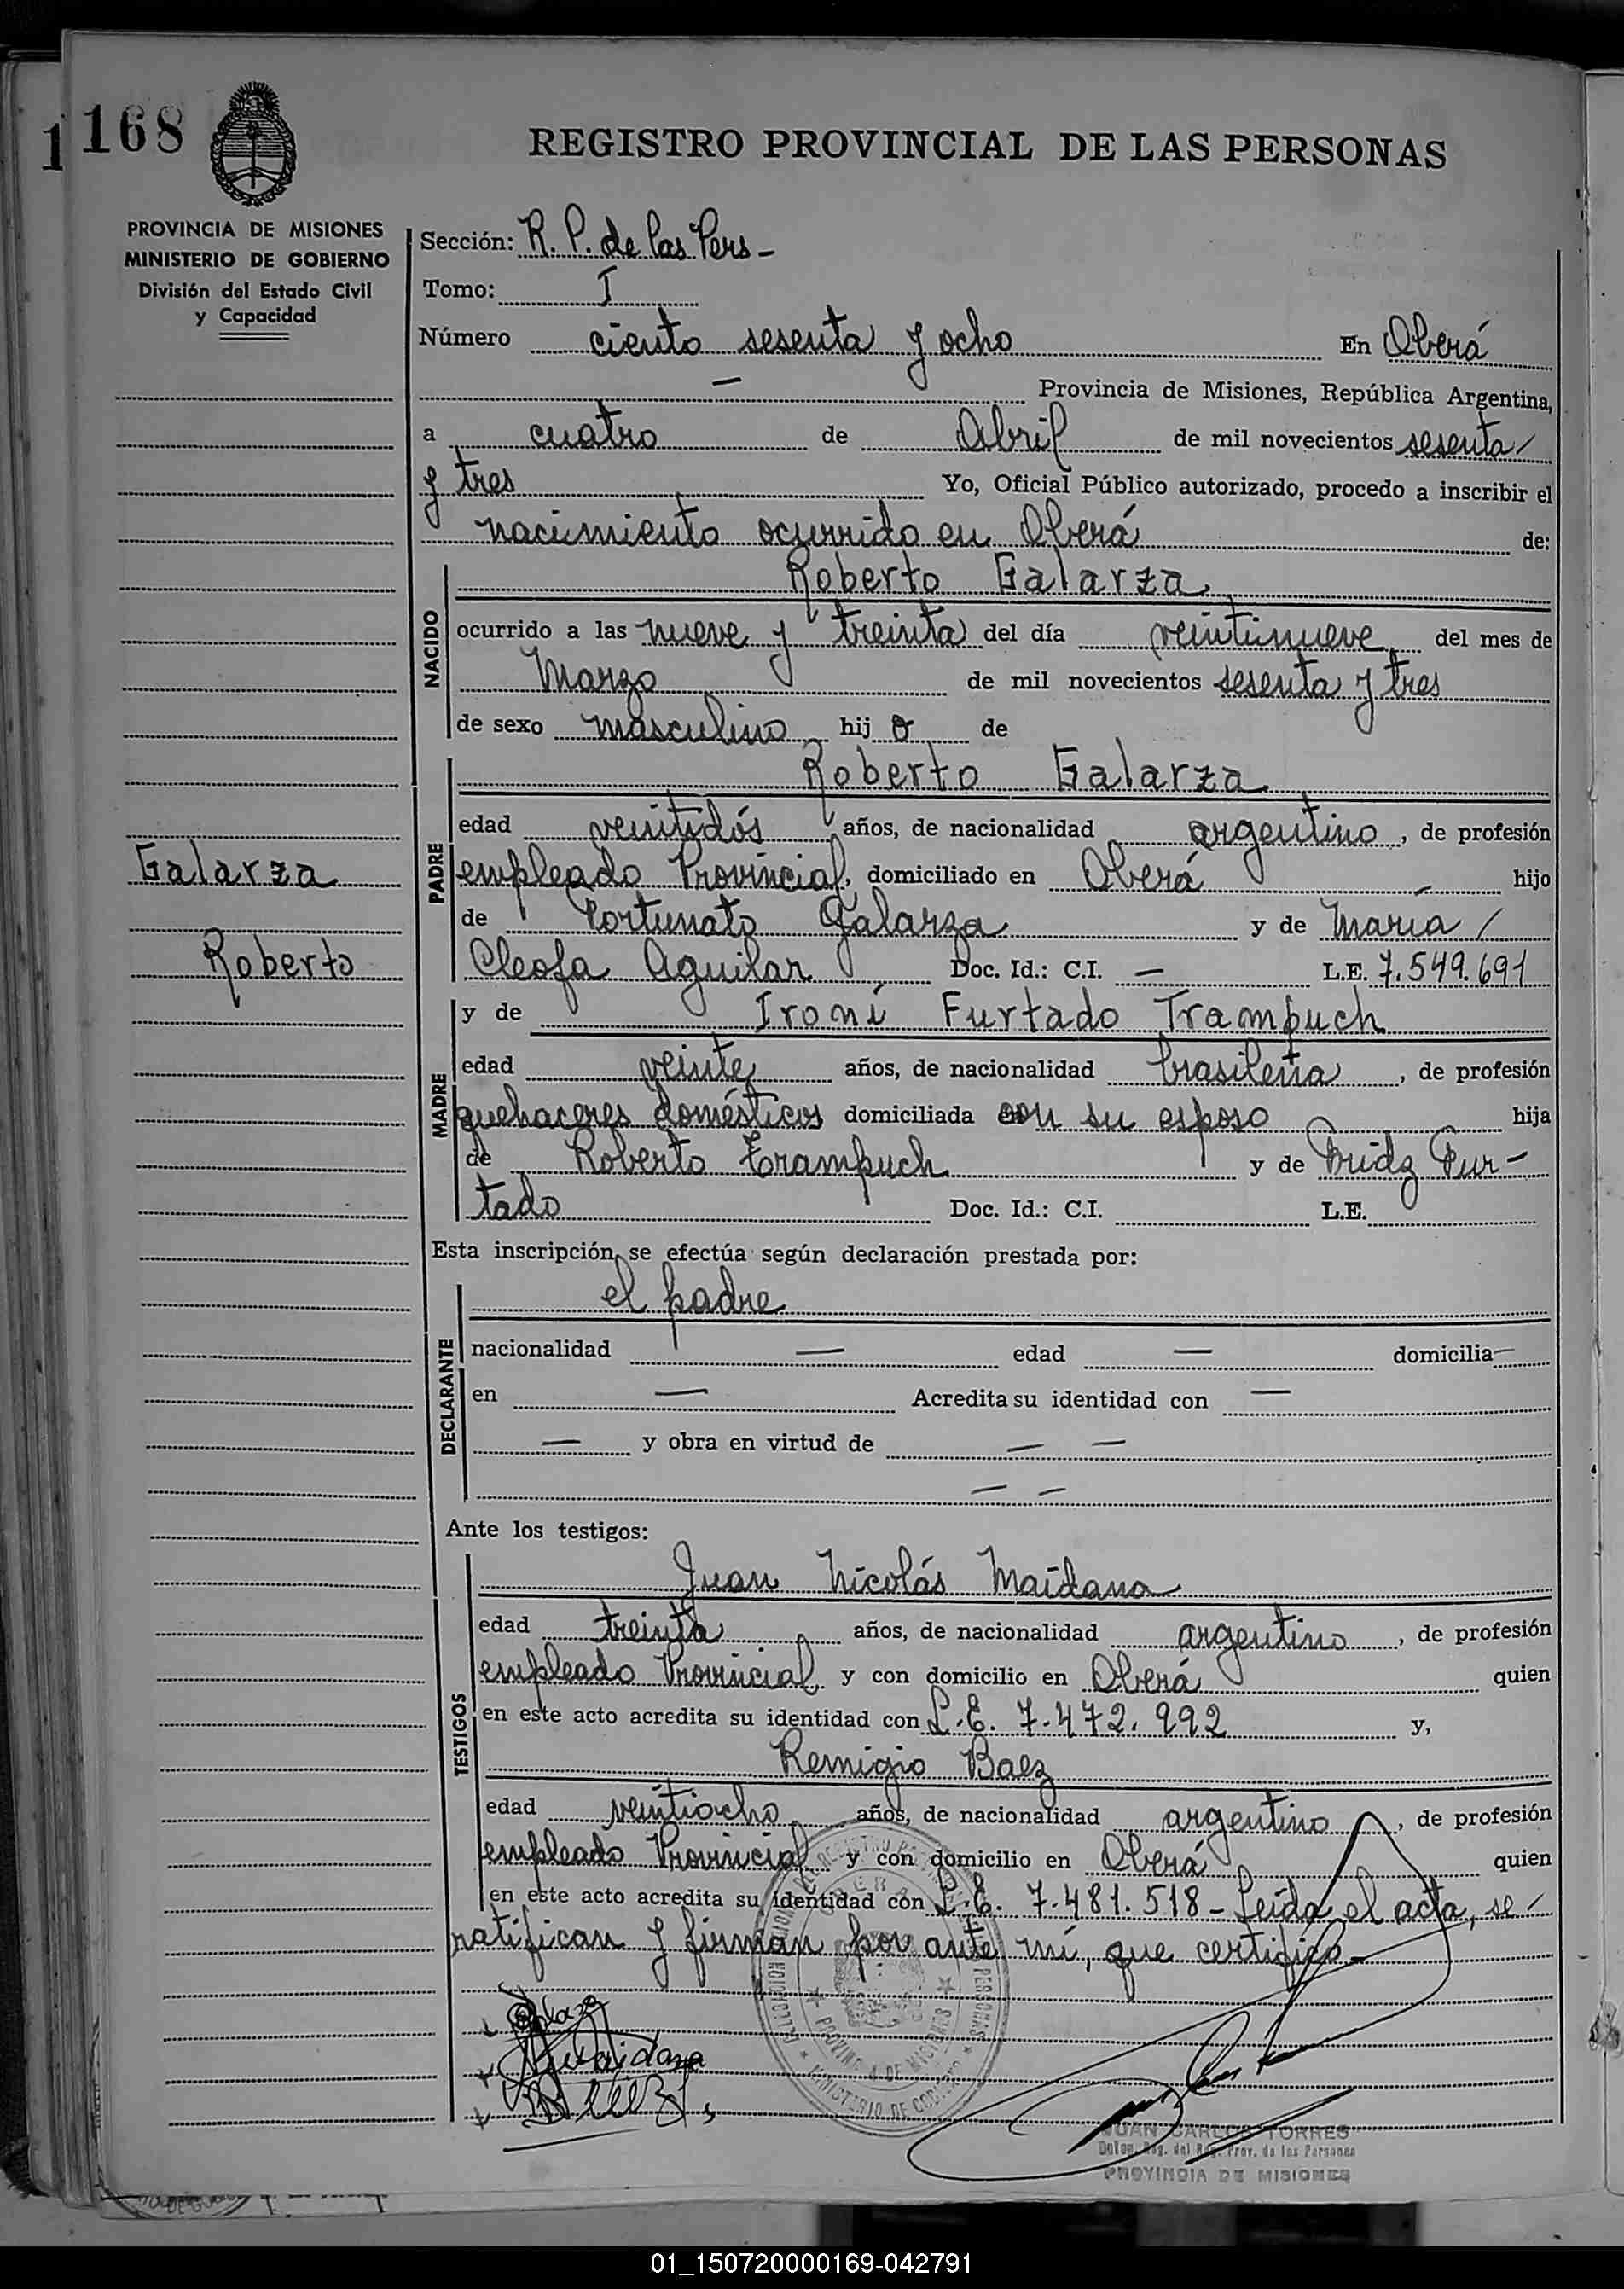 1
168
REGISTRO PROVINCIAL DE LAS PERSONAS
PROVINCIA DE MISIONES
MINISTERIO DE GOBIERNO
División del Estado Civil
y Capacidad
Sección: R. P. de las Pers -
Tomo: I
Número ciento sesenta y ocho En Oberá
— Provincia de Misiones, República Argentina,
a cuatro de Abril de mil novecientos sesenta /
y tres Yo, Oficial Público autorizado, procedo a inscribir el
nacimiento ocurrido en Oberá de:
NACIDO
Roberto Galarza
ocurrido a las nueve y treinta del día veintinueve del mes de
Marzo de mil novecientos sesenta y tres
de sexo masculino hij o de
PADRE
Roberto Galarza
edad veintidós años, de nacionalidad argentino, de profesión
empleado Provincial, domiciliado en Oberá — hijo
de Fortunato Galarza y de María /
Cleofa Aguilar Doc. Id.: C.I. — L.E. 7.549.691
Galarza
Roberto
MADRE
y de Ironi Furtado Trampuch
edad veinte años, de nacionalidad brasileña, de profesión
quehaceres domésticos domiciliada con su esposo hija
de Roberto Trampuch y de Fur-
tado Doc. Id.: C.I. L.E.
Esta inscripción se efectúa según declaración prestada por:
DECLARANTE
el padre
nacionalidad — edad — domicilia —
en — Acredita su identidad con —
— y obra en virtud de — —
— —
Ante los testigos:
TESTIGOS
Juan Nicolás Maidana
edad treinta años, de nacionalidad argentino, de profesión
empleado Provincial, y con domicilio en Oberá quien
en este acto acredita su identidad con L.E. 7.472.992 y,
Remigio Baez
edad veintiocho años, de nacionalidad argentino, de profesión
empleado Provincial y con domicilio en Oberá quien
en este acto acredita su identidad con L.E. 7.481.518 - Leída el acta, se /
ratifican y firman por ante mí, que certifico -
PROVINCIA DE MISIONES
MINISTERIO DE GOBIERNO
Maidana
JUAN CARLOS TORRES
Deleg. Reg. del Reg. Prov. de las Personas
PROVINCIA DE MISIONES
01_150720000169-042791